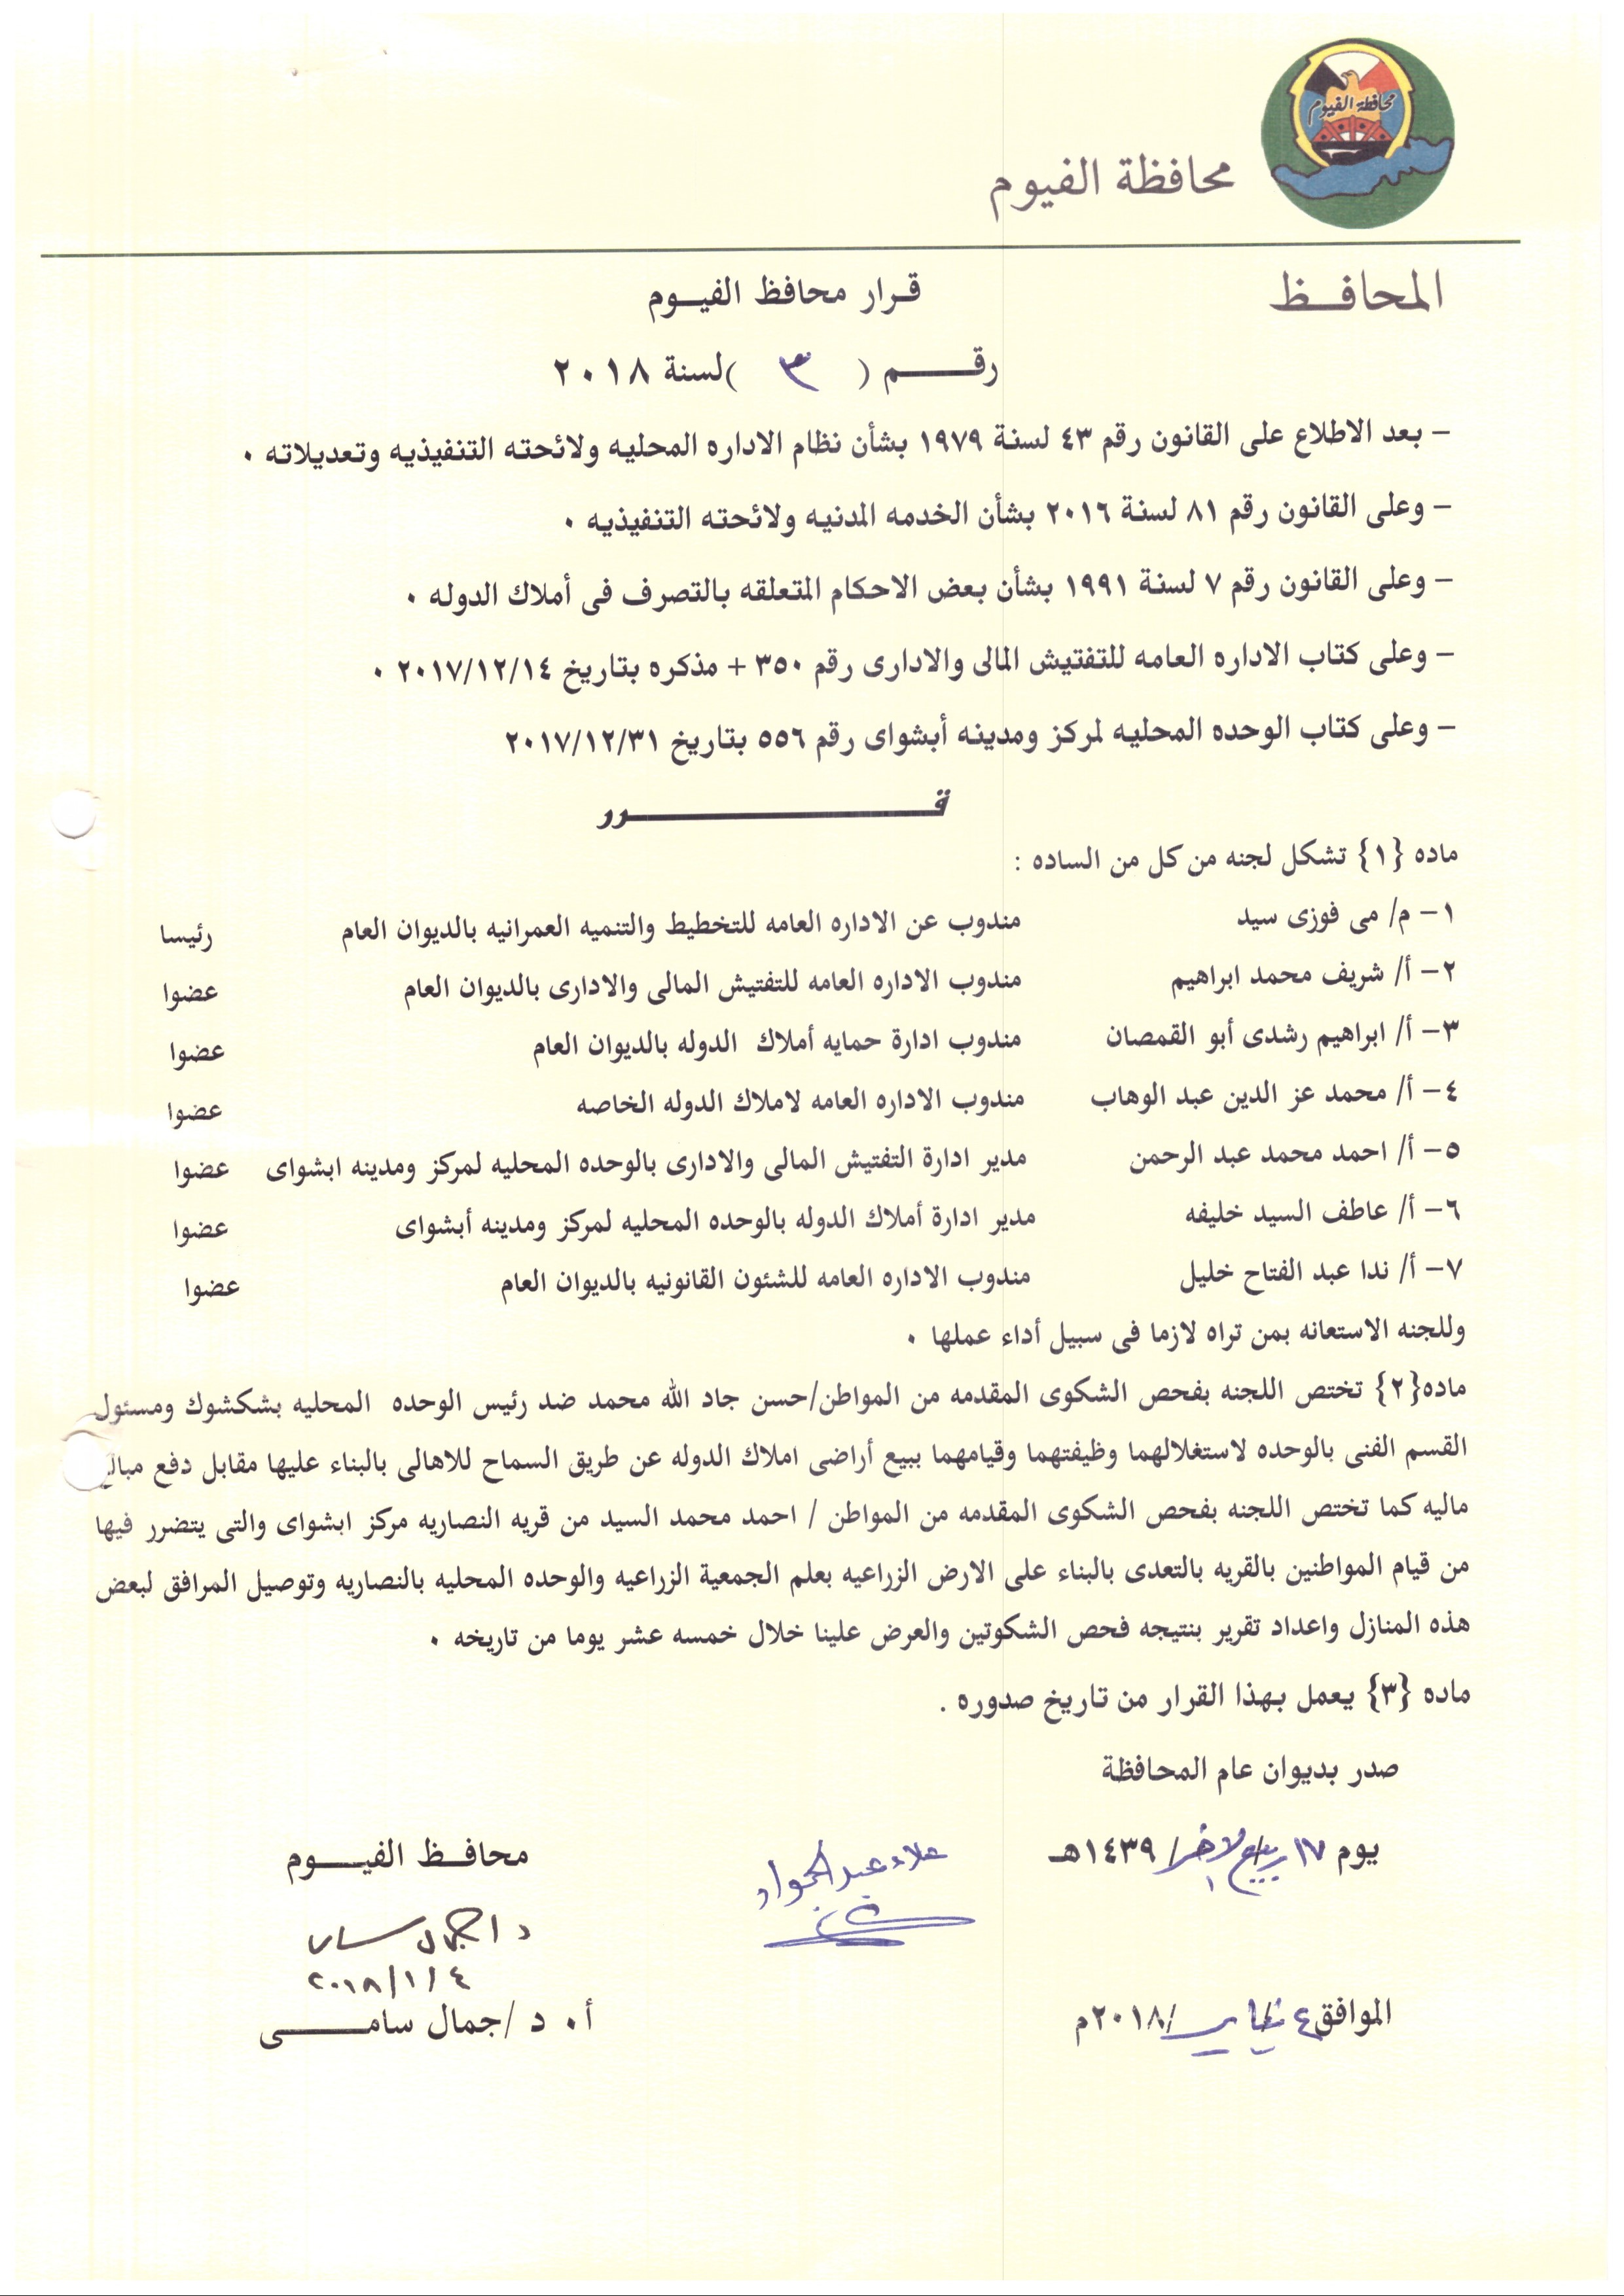 محافظة الفيوم
محافظة الفيوم
المحافـظ
قـرار محافظ الفيـوم
رقـــم ( ٣ )لسنة ٢٠١٨
– بعد الاطلاع على القانون رقم ٤٣ لسنة ١٩٧٩ بشأن نظام الاداره المحليه ولائحته التنفيذيه وتعديلاته ٠
– وعلى القانون رقم ٨١ لسنة ٢٠١٦ بشأن الخدمه المدنيه ولائحته التنفيذيه ٠
– وعلى القانون رقم ٧ لسنة ١٩٩١ بشأن بعض الاحكام المتعلقه بالتصرف فى أملاك الدوله ٠
– وعلى كتاب الاداره العامه للتفتيش المالى والادارى رقم ٣٥٠ + مذكره بتاريخ ٢٠١٧/١٢/١٤ ٠
– وعلى كتاب الوحده المحليه لمركز ومدينه أبشواى رقم ٥٥٦ بتاريخ ٢٠١٧/١٢/٣١
قــــــــــرر
ماده {١} تشكل لجنه من كل من الساده :
١– م/ مى فوزى سيد مندوب عن الاداره العامه للتخطيط والتنميه العمرانيه بالديوان العام رئيسا
٢– أ/ شريف محمد ابراهيم مندوب الاداره العامه للتفتيش المالى والادارى بالديوان العام عضوا
٣– أ/ ابراهيم رشدى أبو القمصان مندوب ادارة حمايه أملاك الدوله بالديوان العام عضوا
٤– أ/ محمد عز الدين عبد الوهاب مندوب الاداره العامه لاملاك الدوله الخاصه عضوا
٥– أ/ احمد محمد عبد الرحمن مدير ادارة التفتيش المالى والادارى بالوحده المحليه لمركز ومدينه ابشواى عضوا
٦– أ/ عاطف السيد خليفه مدير ادارة أملاك الدوله بالوحده المحليه لمركز ومدينه أبشواى عضوا
٧– أ/ ندا عبد الفتاح خليل مندوب الاداره العامه للشئون القانونيه بالديوان العام عضوا
وللجنه الاستعانه بمن تراه لازما فى سبيل أداء عملها ٠
ماده{٢} تختص اللجنه بفحص الشكوى المقدمه من المواطن/حسن جاد الله محمد ضد رئيس الوحده المحليه بشكشوك ومسئول
القسم الفنى بالوحده لاستغلالهما وظيفتهما وقيامهما ببيع أراضى املاك الدوله عن طريق السماح للاهالى بالبناء عليها مقابل دفع مبالغ
ماليه كما تختص اللجنه بفحص الشكوى المقدمه من المواطن / احمد محمد السيد من قريه النصاريه مركز ابشواى والتى يتضرر فيها
من قيام المواطنين بالقريه بالتعدى بالبناء على الارض الزراعيه بعلم الجمعية الزراعيه والوحده المحليه بالنصاريه وتوصيل المرافق لبعض
هذه المنازل واعداد تقرير بنتيجه فحص الشكوتين والعرض علينا خلال خمسه عشر يوما من تاريخه ٠
ماده {٣} يعمل بهذا القرار من تاريخ صدوره .
صدر بديوان عام المحافظة
يوم ١٧ ربيع الاخر/ ١٤٣٩هـ
علاء عبد الجواد
محافـظ الفيـــوم
٢٠١٨/١/٤
الموافق ٤ يناير/ ٢٠١٨م
أ. د /جمال سامــــى